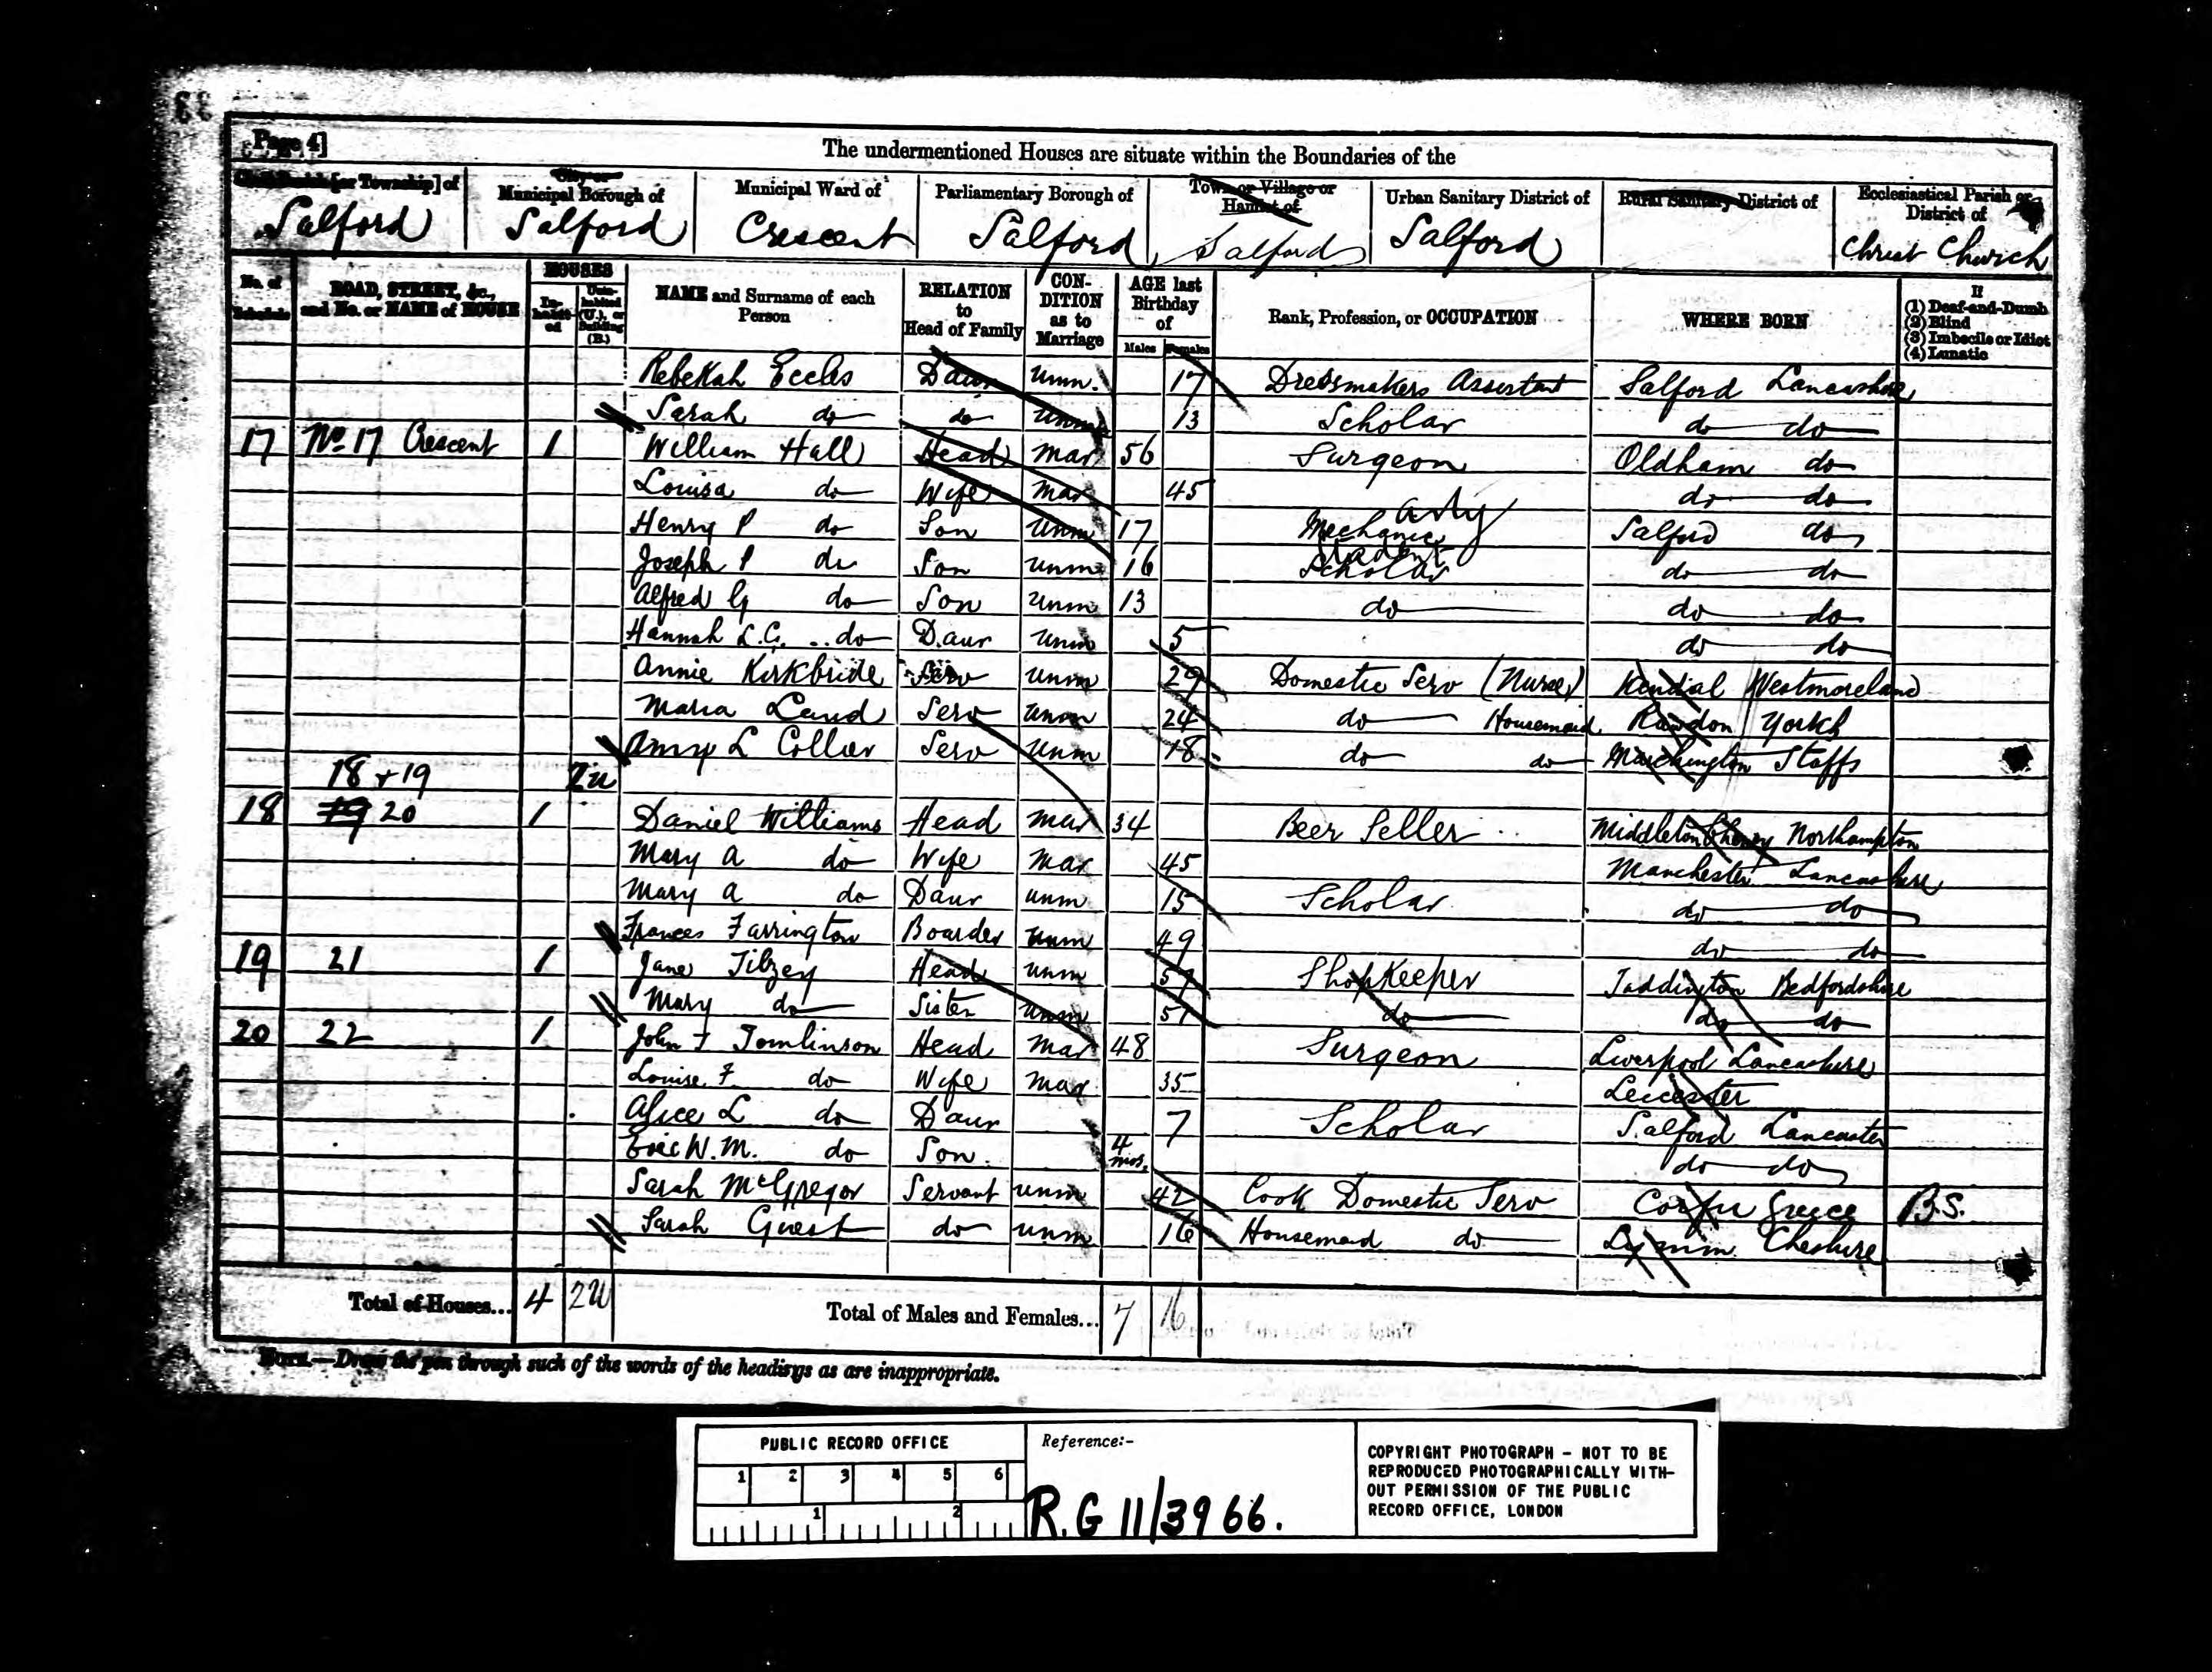 Page 4]
The undermentioned Houses are situate within the Boundaries of the
Civil Parish [or Township] of
City or Municipal Borough of
Municipal Ward of
Parliamentary Borough of
Town or Village or Hamlet of
Urban Sanitary District of
Rural Sanitary District of
Ecclesiastical Parish or District of
Salford Salford Crescent Salford Salford Salford Christ Church
No. of Schedule
ROAD, STREET, &c., and No. or NAME of HOUSE
HOUSES
In-habit-ed
Unin-habited (U.), or Building (B.)
NAME and Surname of each Person
RELATION to Head of Family
CON-DITION as to Marriage
AGE last Birthday of
Males Females
Rank, Profession, or OCCUPATION
WHERE BORN
If
(1) Deaf-and-Dumb
(2) Blind
(3) Imbecile or Idiot
(4) Lunatic
Rebekah Eccles Daur Unm. 17 Dressmakers Assistant Salford Lancashire
Sarah do do Unm 13 Scholar do do
17 No 17 Crescent 1 William Hall Head Mar 56 Surgeon Oldham do
Louisa do Wife Mar 45 do do
Henry P do Son Unm 17 Mechanic Salford do
Joseph P do Son Unm 16 Scholar Student do do
Alfred G do Son Unm 13 do do do
Hannah L.G. do Daur Unm 5 do do
Annie Kirkbride Serv Unm 29 Domestic Serv (Nurse) Kendal Westmoreland
Maria Laud Serv Unm 24 do Housemaid Rawdon Yorks
Amy L Collier Serv Unm 18 do do Marchington Staffs
18 + 19 2u
18 19 20 1 Daniel Williams Head Mar 34 Beer Seller Middleton Cheney Northampton
Mary A do Wife Mar 45 Manchester Lancashire
Mary A do Daur Unm 15 Scholar do do
Frances Farrington Boarder Unm 49 do do
19 21 1 Jane Tilzey Head Unm Shopkeeper Toddington Bedfordshire
Mary do Sister Unm 51 do do do
20 22 1 John F Tomlinson Head Mar 48 Surgeon Liverpool Lancashire
Louise F. do Wife Mar 35 Leicester
Alice L do Daur 7 Scholar Salford Lancaster
Eric W. M. do Son. 4 mos. do do
Sarah McGregor Servant Unm 42 Cook Domestic Serv Corfu Greece B.S.
Sarah Guest do Unm 16 Housemaid do Lymm Cheshire
Total of Houses... 4 2U Total of Males and Females... 7 16
NOTE.—Draw the pen through such of the words of the headings as are inappropriate.
PUBLIC RECORD OFFICE
1 2 3 4 5 6
1 2
Reference:-
R.G 11/3966.
COPYRIGHT PHOTOGRAPH - NOT TO BE
REPRODUCED PHOTOGRAPHICALLY WITH-
OUT PERMISSION OF THE PUBLIC
RECORD OFFICE, LONDON